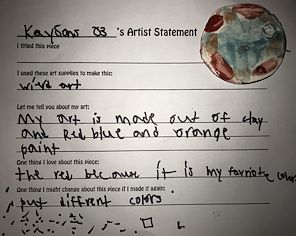 Kaysons 03 's Artist Statement
I titled this piece
I used these art supplies to make this:
wire art
Let me tell you about my art:
My art is made out of clay
and Red blue and orange
paint
One thing I love about this piece:
the red because it is my favriate color
One thing I might change about this piece if I made it again:
put diffrent colors